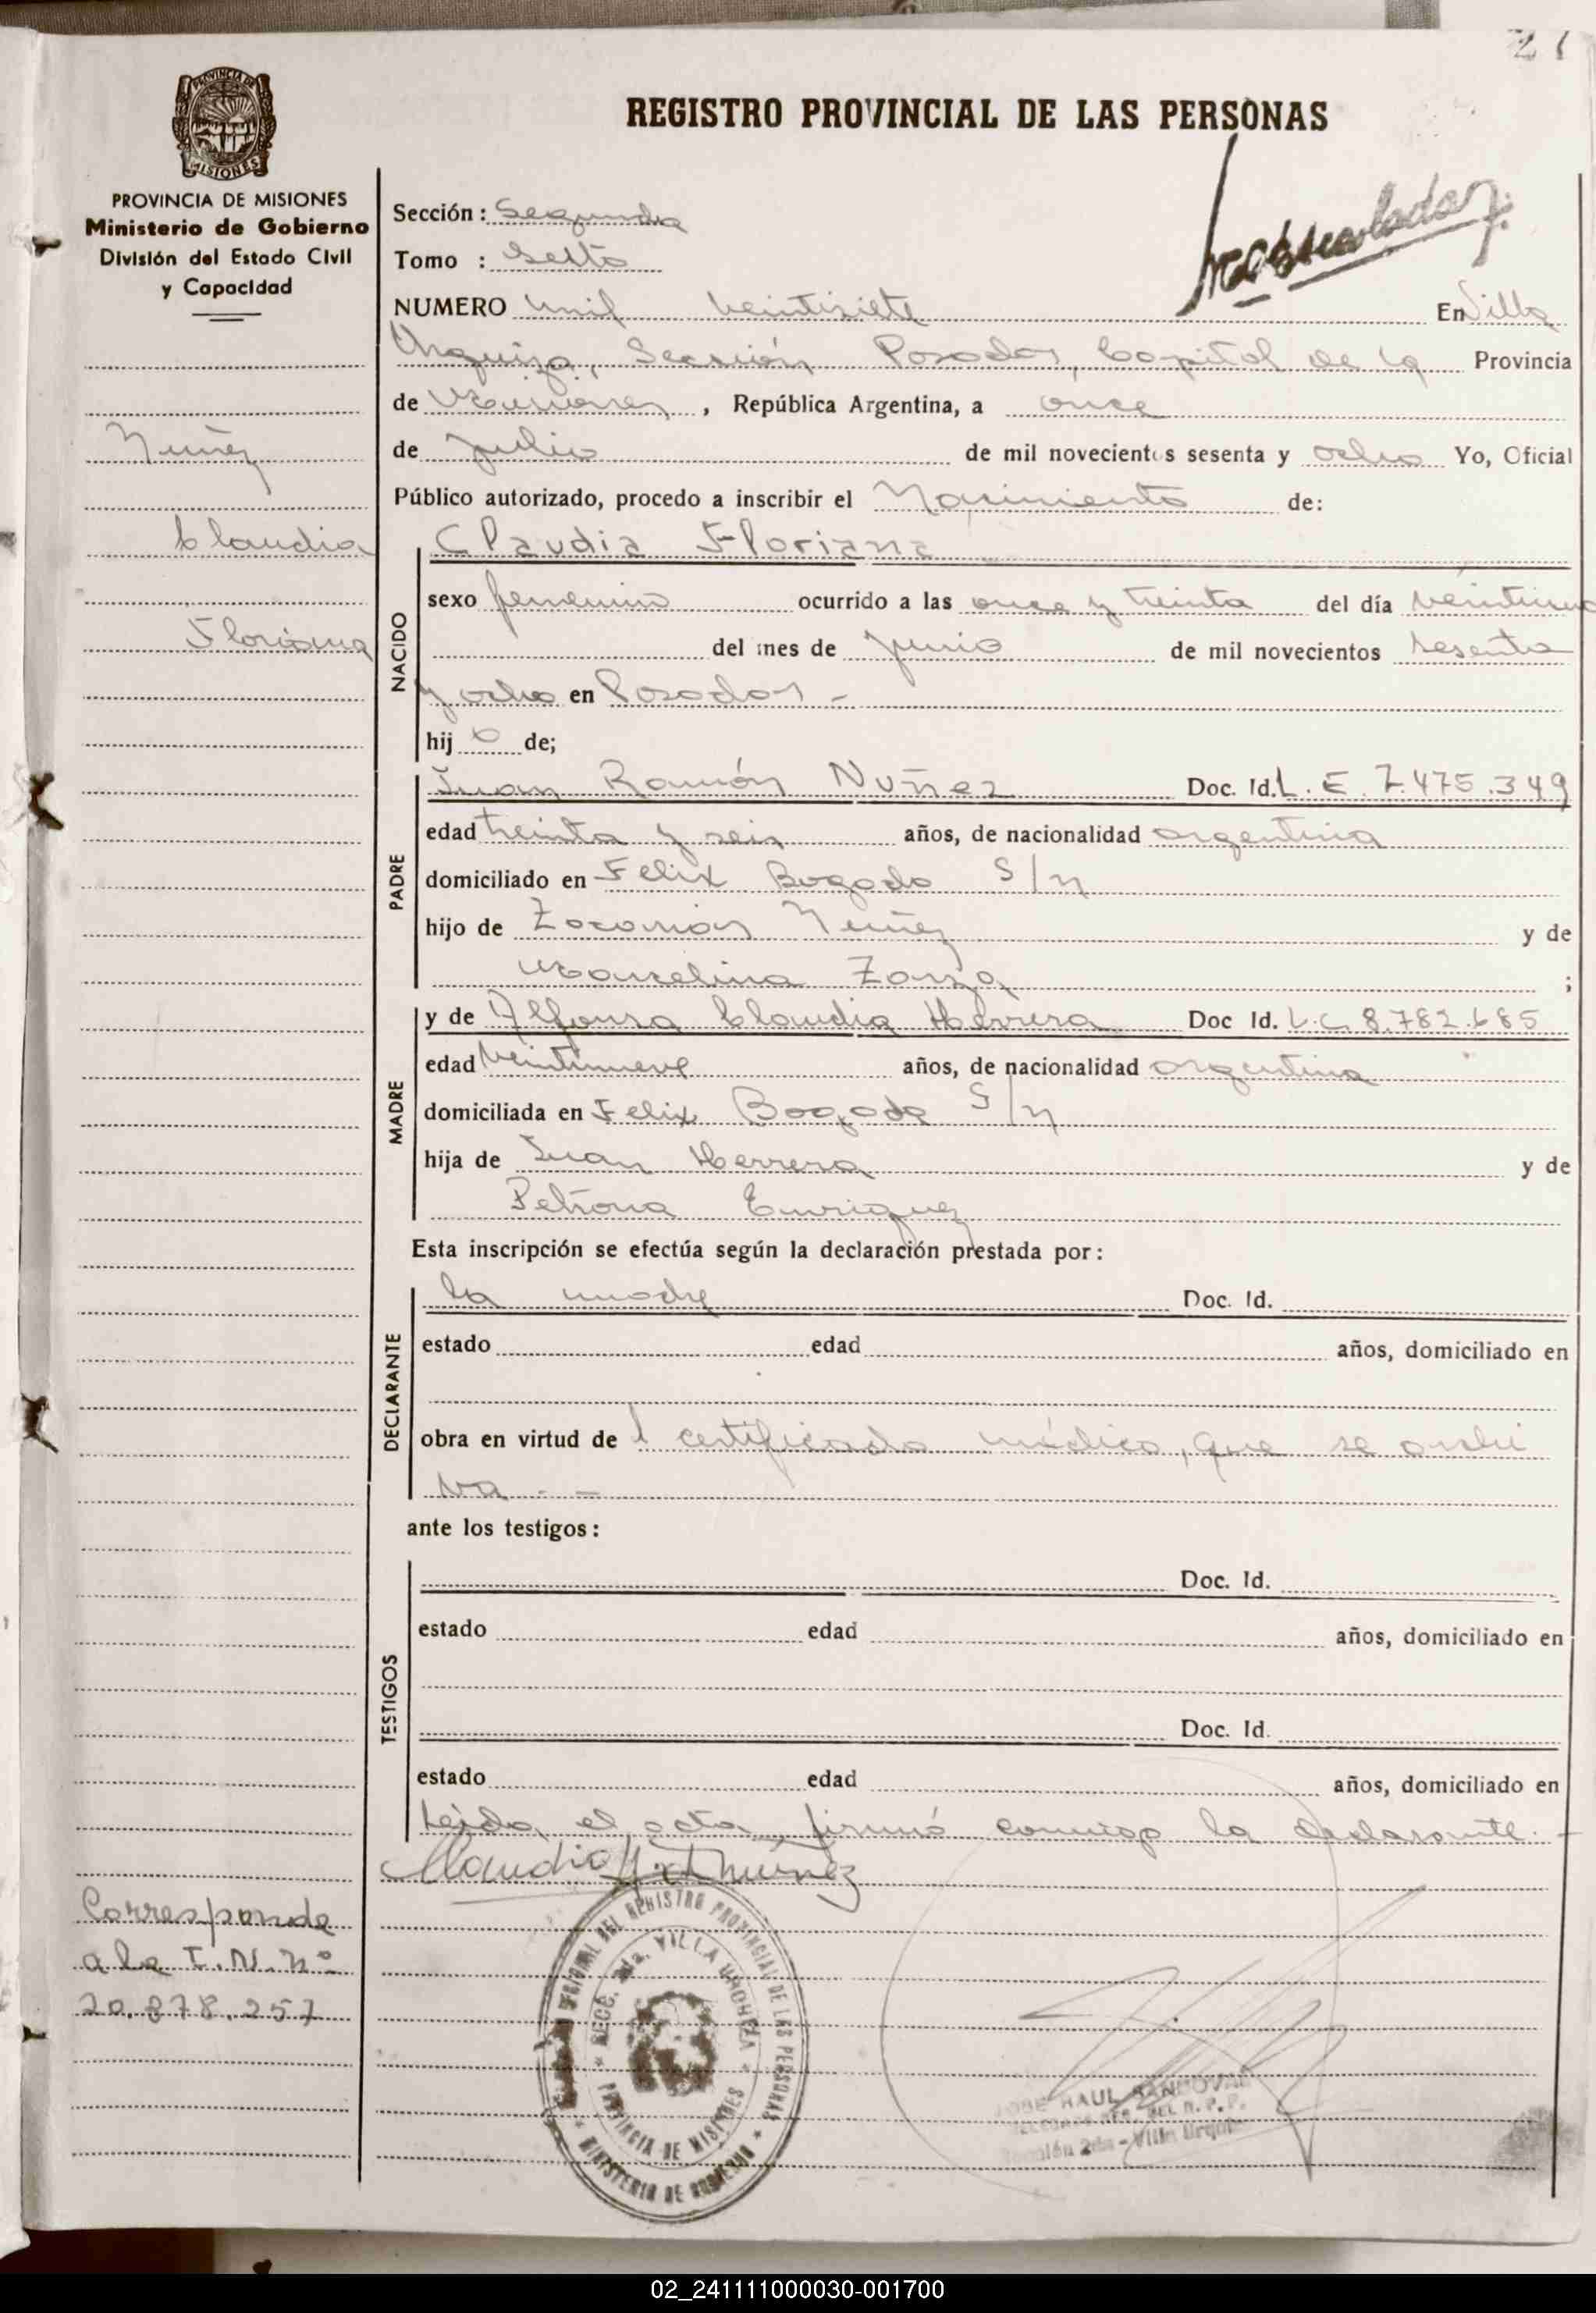 21
REGISTRO PROVINCIAL DE LAS PERSONAS
PROVINCIA DE MISIONES
Ministerio de Gobierno
División del Estado Civil
y Capacidad
Nuñez
Claudia
Floriana
Sección: Segunda
Tomo : Sexto
NUMERO mil veintisiete En Villa
Urquiza, Sección Posadas, Capital de la Provincia
de Misiones, República Argentina, a once
de Julio de mil novecientos sesenta y ocho Yo, Oficial
Público autorizado, procedo a inscribir el Nacimiento de:
NACIDO
Claudia Floriana
sexo femenino ocurrido a las once y treinta del día veintiuno
del mes de junio de mil novecientos sesenta
y ocho en Posadas -
hij de;
PADRE
Juan Ramón Nuñez Doc. Id. L. E. 7.475.349
edad treinta y seis años, de nacionalidad argentina
domiciliado en Felix Bogado S/n
hijo de Zacarias Nuñez y de
Marcelina ;
MADRE
y de Alfonsa Claudia Herrera Doc Id. L.C. 8.782.685
edad veintinueve años, de nacionalidad argentina
domiciliada en Felix Bogado S/n
hija de Juan Herrera y de
Petrona Enriquez
Esta inscripción se efectúa según la declaración prestada por:
DECLARANTE
la madre Doc. Id.
estado edad años, domiciliado en
obra en virtud de l certificado médico, que se archi
va - -
ante los testigos:
TESTIGOS
Doc. Id.
estado edad años, domiciliado en
Doc. Id.
estado edad años, domiciliado en
Leida el acta, firmó conmigo la declarante. -
Corresponde
a la I.N.nº
20.278.257
REGISTRO PROVINCIAL DE LAS PERSONAS
SECC. 2da. VILLA URQUIZA
PROVINCIA DE MISIONES
MINISTERIO DE GOBIERNO
JOSE RAUL SANDOVAL
Sección 2da - Villa Urquiza
02_241111000030-001700